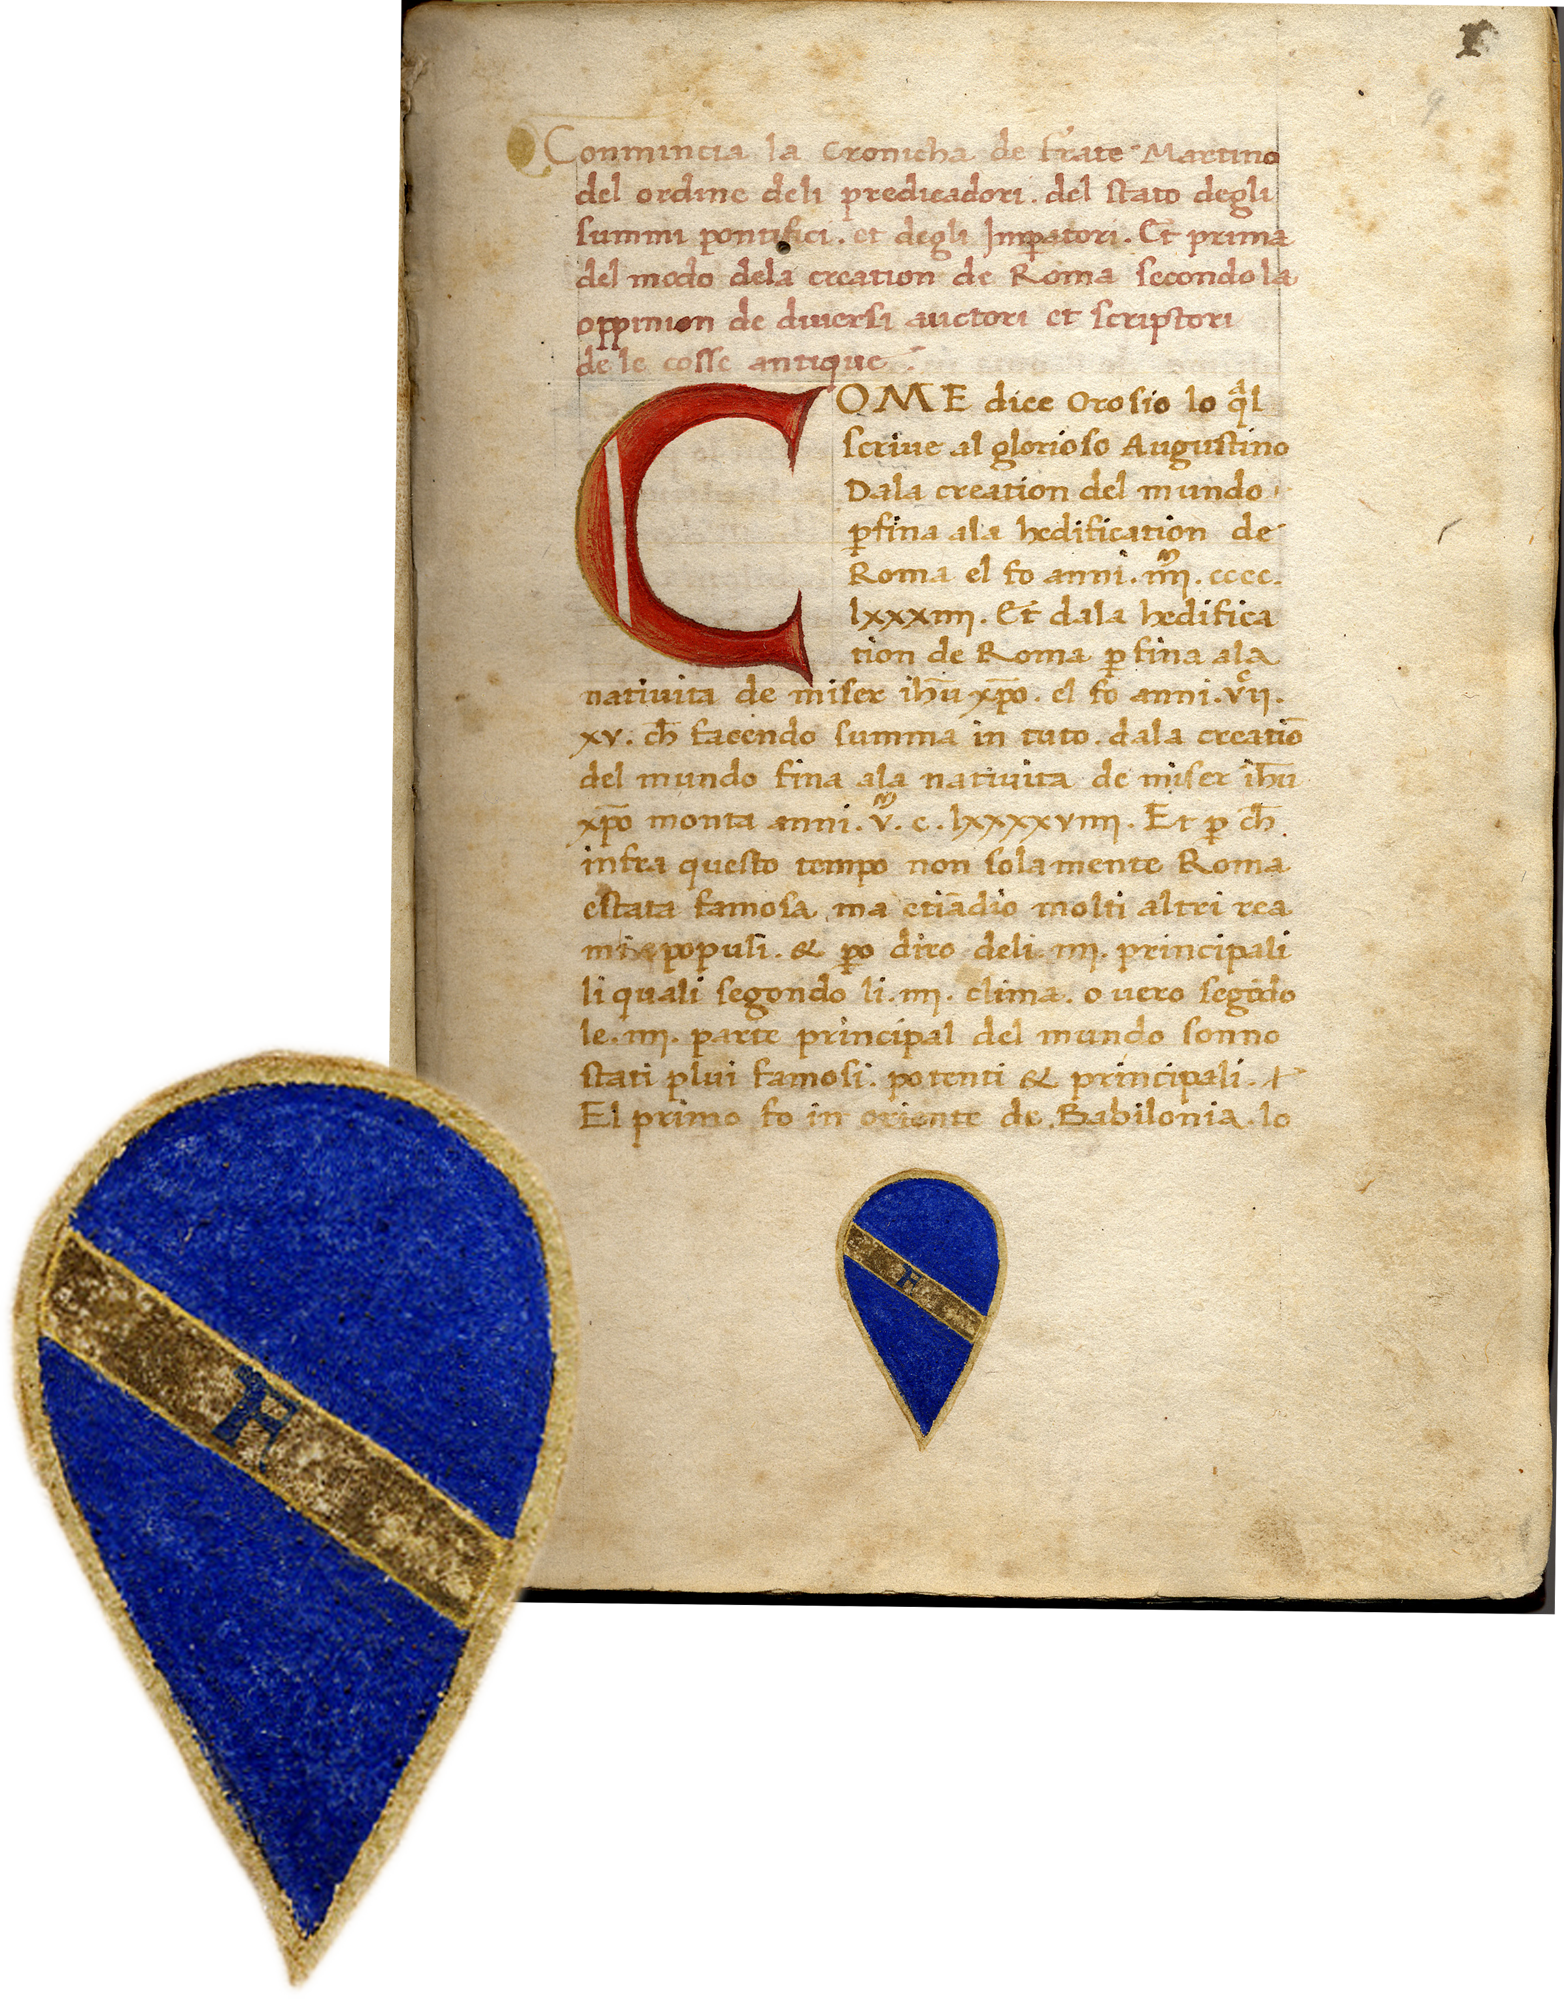 Conmincia la Cronicha de frate Martino
del ordine deli predicadori. del stato degli
summi pontifici. et degli Imperatori. Et prima
del modo dela creation de Roma secondo la
oppinion de diversi auctori et scriptori
de le cosse antique.
COME dice Orosio lo ql
scriue al glorioso Augustino
Dala creation del mundo
pfina ala hedification de
Roma el fo anni. iiii. cccc.
lxxxiiii. Et dala hedifica
tion de Roma pfina ala
natiuita de miser ihu xpo. el fo anni. vii.
xv. ch facendo summa in tuto. dala creatiō
del mundo fina ala natiuita de miser ihu
xpo monta anni. v. c. lxxxxviiii. Et p ch
infra questo tempo non solamente Roma
estata famosa, ma etiādio molti altri rea
mi populi. & po diro deli. iiii. principali
li quali segondo li. iiii. clima. o uero segōdo
le. iiii. parte principal del mundo sonno
stati plui famosi. potenti & principali.
El primo fo in oriente de. Babilonia. lo